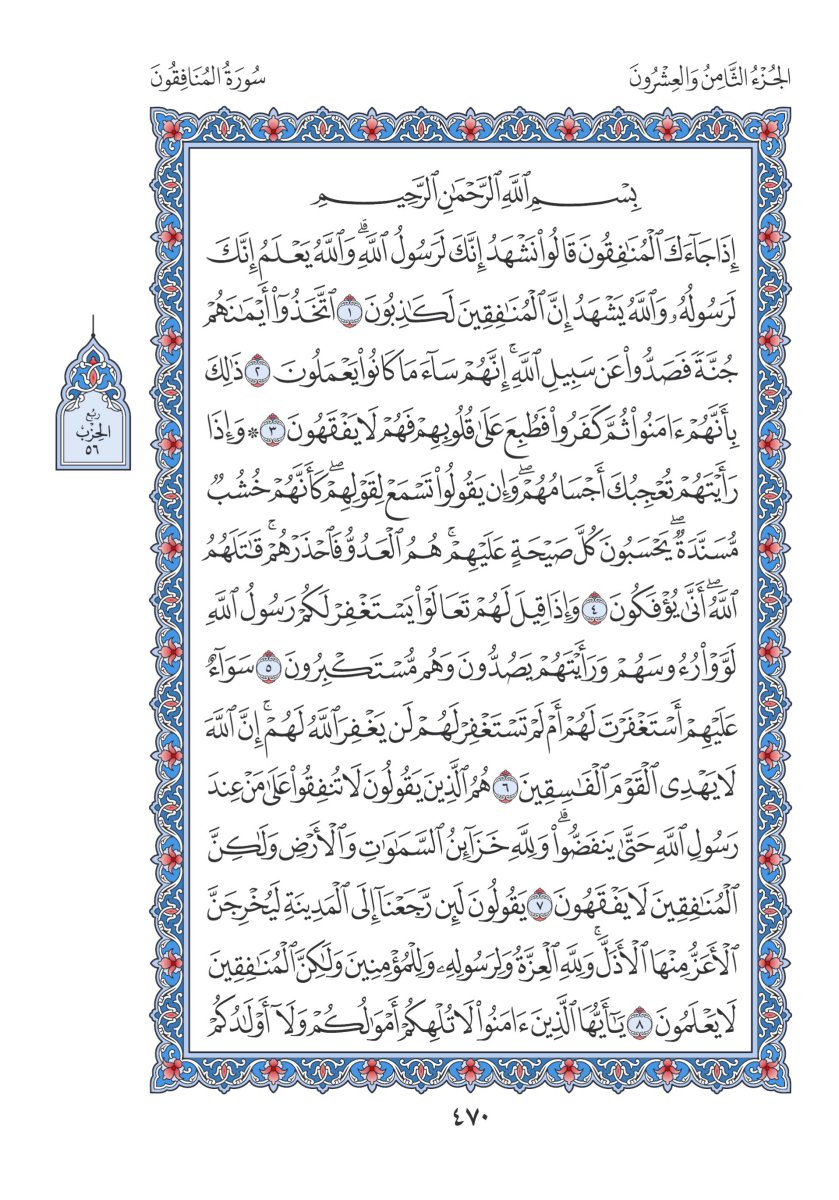 الجُزْءُ الثَّامِنُ وَالعِشْرُونَ
سُورَةُ المُنَافِقُونَ
بِسْمِ ٱللَّهِ ٱلرَّحْمَٰنِ ٱلرَّحِيمِ
إِذَا جَآءَكَ ٱلْمُنَٰفِقُونَ قَالُوا۟ نَشْهَدُ إِنَّكَ لَرَسُولُ ٱللَّهِ ۗ وَٱللَّهُ يَعْلَمُ إِنَّكَ
لَرَسُولُهُۥ وَٱللَّهُ يَشْهَدُ إِنَّ ٱلْمُنَٰفِقِينَ لَكَٰذِبُونَ ١ ٱتَّخَذُوٓا۟ أَيْمَٰنَهُمْ
جُنَّةً فَصَدُّوا۟ عَن سَبِيلِ ٱللَّهِ ۚ إِنَّهُمْ سَآءَ مَا كَانُوا۟ يَعْمَلُونَ ٢ ذَٰلِكَ
بِأَنَّهُمْ ءَامَنُوا۟ ثُمَّ كَفَرُوا۟ فَطُبِعَ عَلَىٰ قُلُوبِهِمْ فَهُمْ لَا يَفْقَهُونَ ٣ * وَإِذَا
رَأَيْتَهُمْ تُعْجِبُكَ أَجْسَامُهُمْ ۖ وَإِن يَقُولُوا۟ تَسْمَعْ لِقَوْلِهِمْ ۖ كَأَنَّهُمْ خُشُبٌ
مُّسَنَّدَةٌ ۖ يَحْسَبُونَ كُلَّ صَيْحَةٍ عَلَيْهِمْ ۚ هُمُ ٱلْعَدُوُّ فَٱحْذَرْهُمْ ۚ قَٰتَلَهُمُ
ٱللَّهُ ۖ أَنَّىٰ يُؤْفَكُونَ ٤ وَإِذَا قِيلَ لَهُمْ تَعَالَوْا۟ يَسْتَغْفِرْ لَكُمْ رَسُولُ ٱللَّهِ
لَوَّوْا۟ رُءُوسَهُمْ وَرَأَيْتَهُمْ يَصُدُّونَ وَهُم مُّسْتَكْبِرُونَ ٥ سَوَآءٌ
عَلَيْهِمْ أَسْتَغْفَرْتَ لَهُمْ أَمْ لَمْ تَسْتَغْفِرْ لَهُمْ لَن يَغْفِرَ ٱللَّهُ لَهُمْ ۚ إِنَّ ٱللَّهَ
لَا يَهْدِى ٱلْقَوْمَ ٱلْفَٰسِقِينَ ٦ هُمُ ٱلَّذِينَ يَقُولُونَ لَا تُنفِقُوا۟ عَلَىٰ مَنْ عِندَ
رَسُولِ ٱللَّهِ حَتَّىٰ يَنفَضُّوا۟ ۗ وَلِلَّهِ خَزَآئِنُ ٱلسَّمَٰوَٰتِ وَٱلْأَرْضِ وَلَٰكِنَّ
ٱلْمُنَٰفِقِينَ لَا يَفْقَهُونَ ٧ يَقُولُونَ لَئِن رَّجَعْنَآ إِلَى ٱلْمَدِينَةِ لَيُخْرِجَنَّ
ٱلْأَعَزُّ مِنْهَا ٱلْأَذَلَّ ۚ وَلِلَّهِ ٱلْعِزَّةُ وَلِرَسُولِهِۦ وَلِلْمُؤْمِنِينَ وَلَٰكِنَّ ٱلْمُنَٰفِقِينَ
لَا يَعْلَمُونَ ٨ يَٰٓأَيُّهَا ٱلَّذِينَ ءَامَنُوا۟ لَا تُلْهِكُمْ أَمْوَٰلُكُمْ وَلَآ أَوْلَٰدُكُمْ
رُبْع
الحِزْب
٥٦
٤٧٠